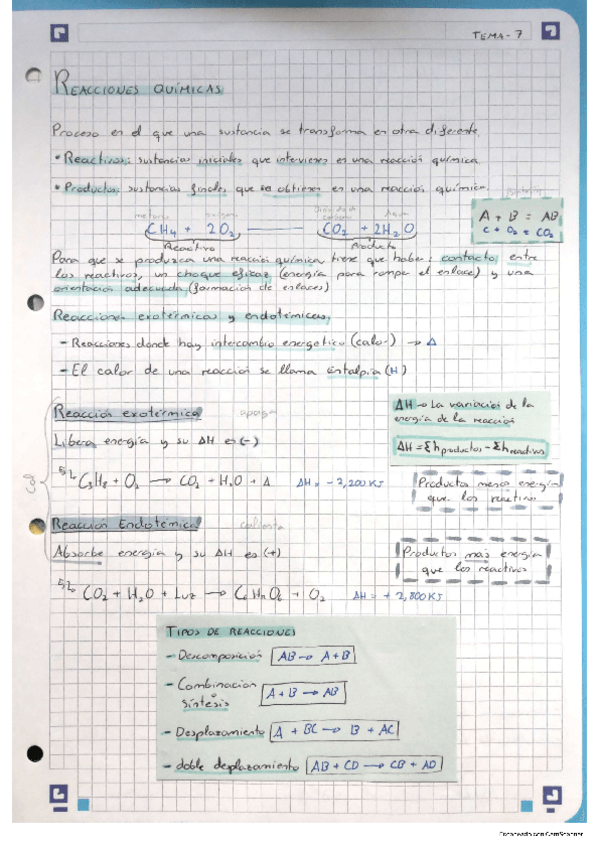 TEMA-7
REACCIONES QUÍMICAS
Proceso en el que una sustancia se transforma en otra diferente.
• Reactivos: sustancias iniciales que intervienen en una reacción química
• Productos: sustancias finales que se obtienen en una reacción química.
A + B = AB
C + O₂ = CO₂
metano Dióxido de carbono Agua
CH₄ + 2O₂ → CO₂ + 2H₂O
Reactivo Producto
Para que se produzca una reacción química tiene que haber: contacto entre
los reactivos, un choque eficaz (energía para romper el enlace) y una
orientación adecuada (formación de enlaces)
Reacciones exotérmicas y endotérmicas,
- Reacciones donde hay intercambio energético (calor) → Δ
- El calor de una reacción se llama entalpia (H)
Reacción exotérmica apaga
Libera energía y su ΔH es (-)
ΔH → La variación de la
energía de la reacción
ΔH = Σh productos - Σh reactivos
C₃H₈ + O₂ → CO₂ + H₂O + Δ ΔH = - 2,200 KJ
Productos menos energía
que los reactivos
Reacción Endotérmica calienta
Absorbe energía y su ΔH es (+)
Productos más energía
que los reactivos
CO₂ + H₂O + Luz → C₆H₁₂O₆ + O₂ ΔH = + 2,800 KJ
TIPOS DE REACCIONES
- Descomposición AB → A + B
- Combinación
o
síntesis A + B → AB
- Desplazamiento A + BC → B + AC
- doble desplazamiento AB + CD → CB + AD
Escaneado con CamScanner